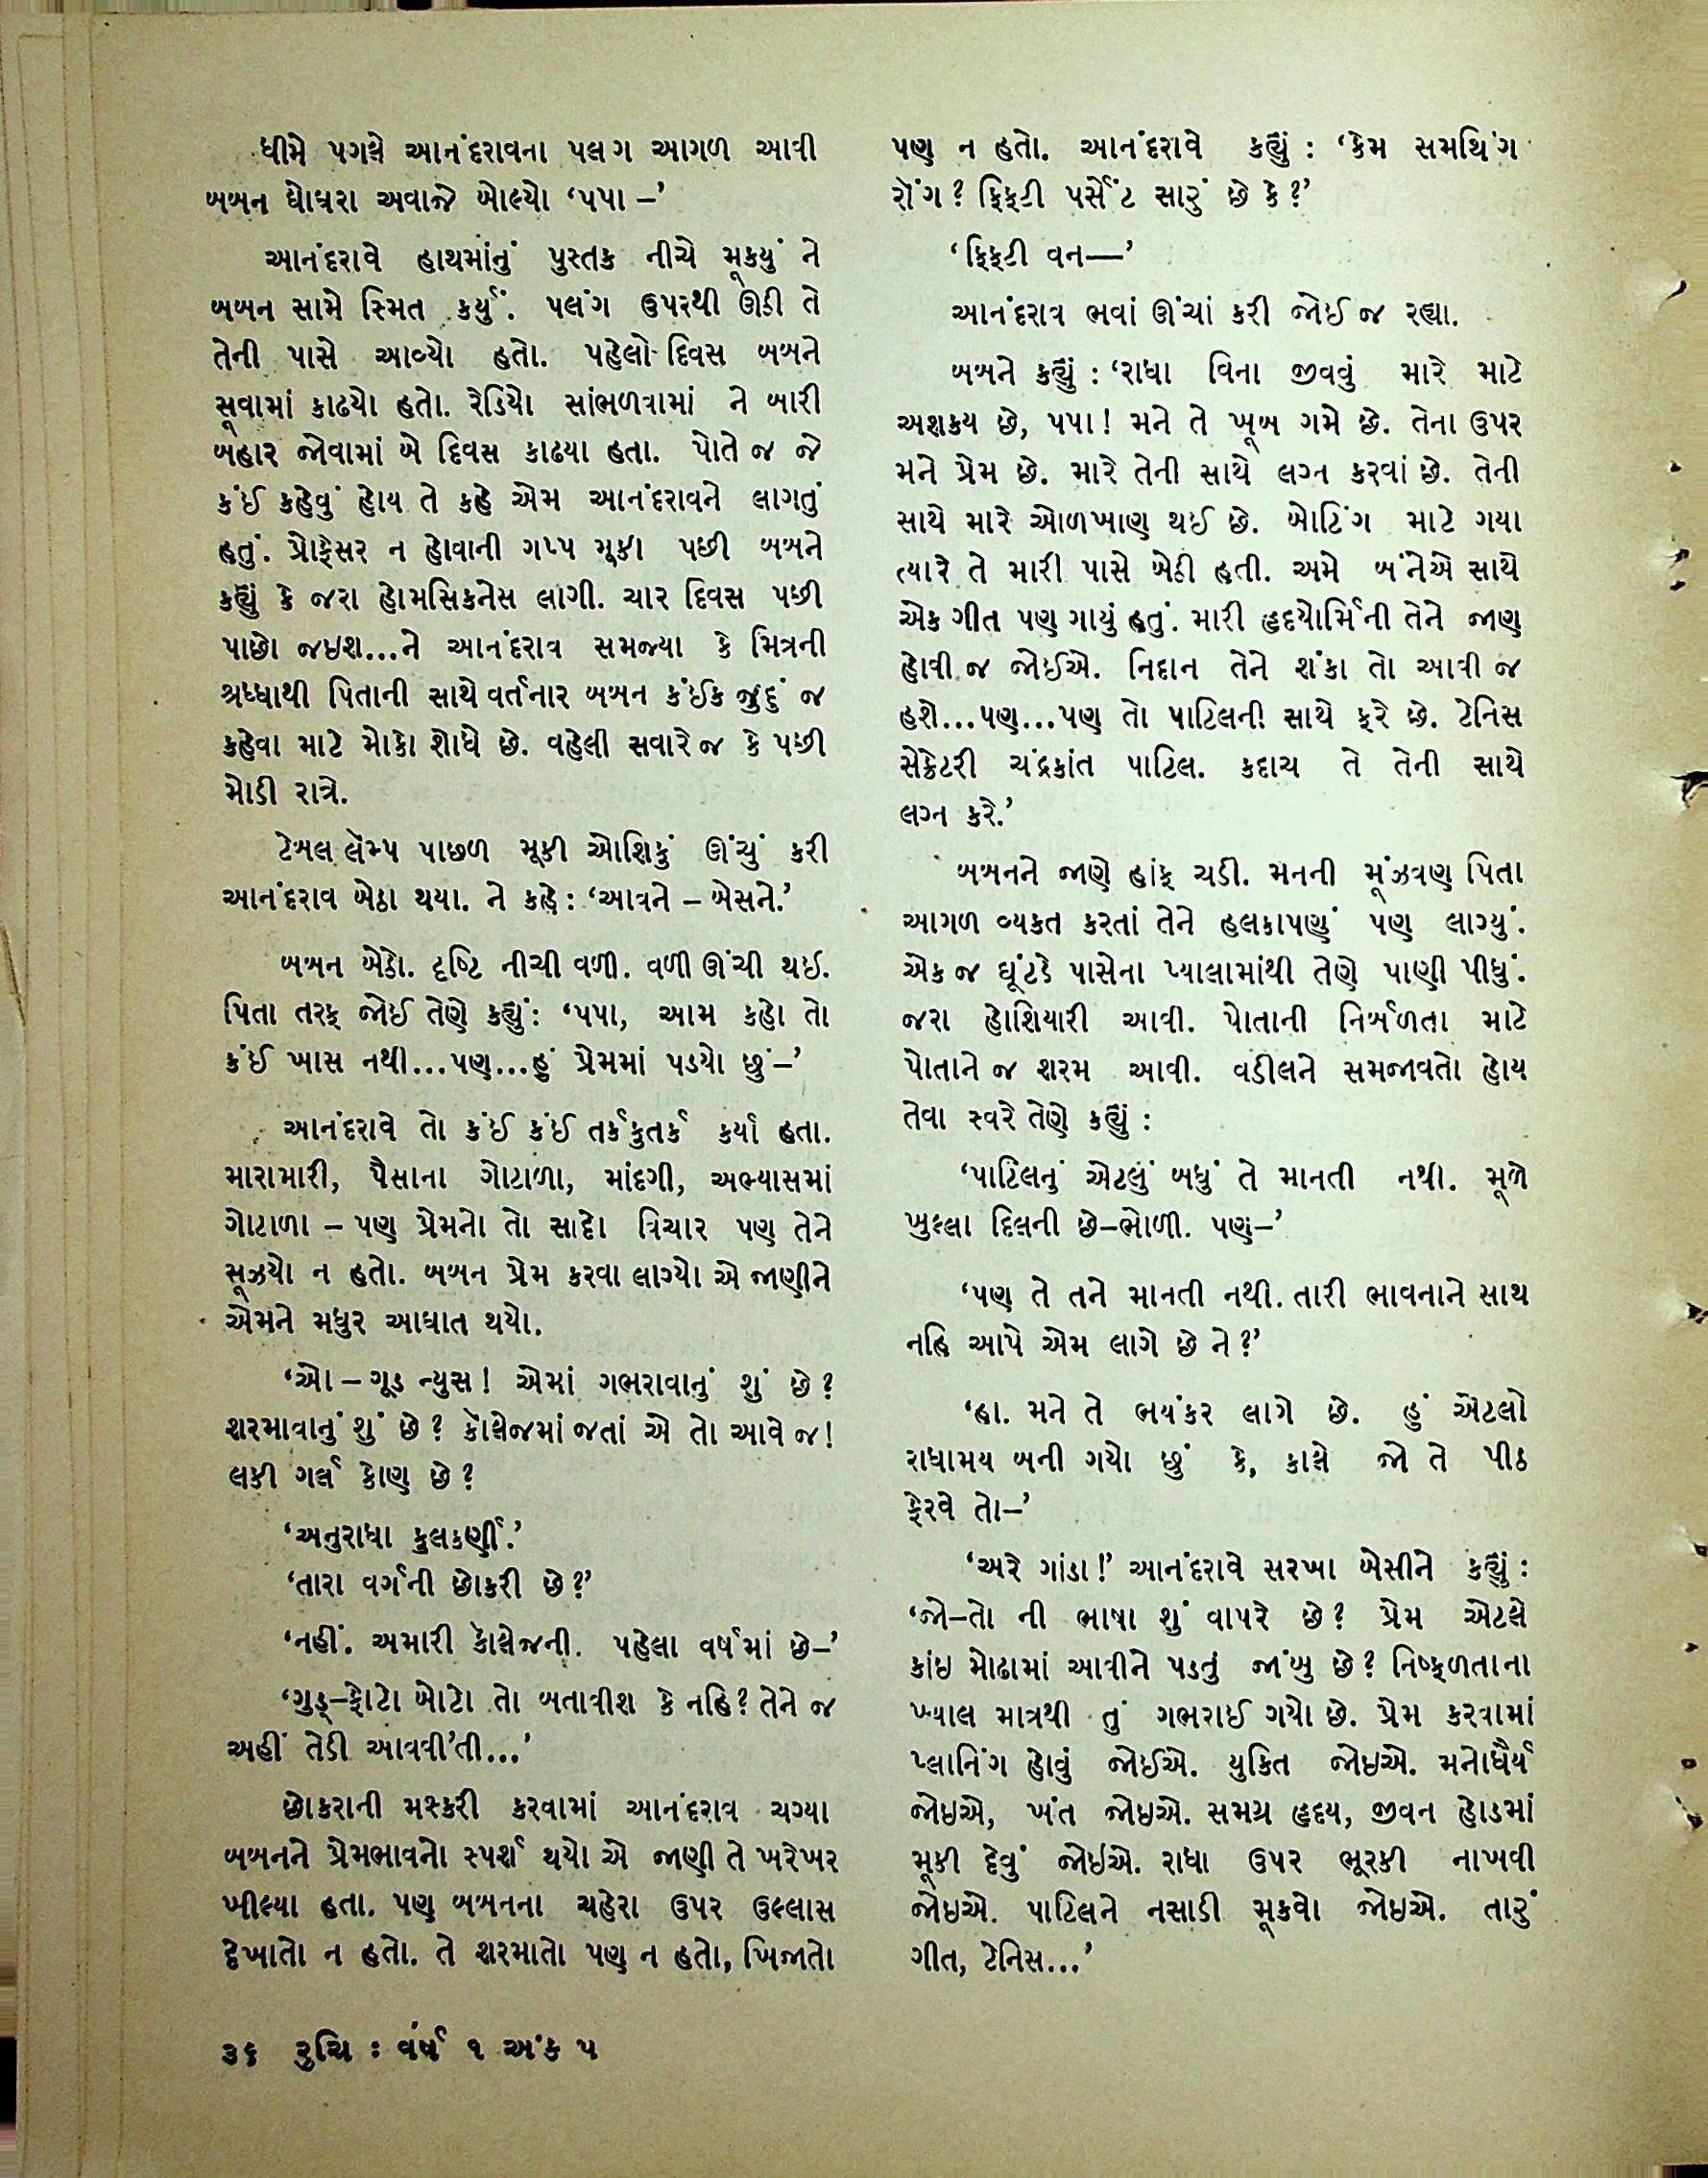 ધીમે પગલે આનંદરાવના પલગ આગળ આવી
બબન ઘોઘરા અવાજે બોલ્યો ‘પપા –’
આનંદરાવે હાથમાંનું પુસ્તક નીચે મૂકયું ને
બબન સામે સ્મિત કર્યું. પલંગ ઉપરથી ઊઠી તે
તેની પાસે આવ્યો હતો. પહેલો દિવસ બબને
સૂવામાં કાઢયો હતો. રેડિયો સાંભળવામાં ને બારી
બહાર જોવામાં બે દિવસ કાઢયા હતા. પોતે જ જે
કંઈ કહેવું હોય તે કહે એમ આનંદરાવને લાગતું
હતું. પ્રોફેસર ન હોવાની ગપ્પ મૂકી પછી બબને
કહ્યું કે જરા હોમસિકનેસ લાગી. ચાર દિવસ પછી
પાછો જઇશ...ને આનંદરાવ સમજ્યા કે મિત્રની
શ્રધ્ધાથી પિતાની સાથે વર્તનાર બબન કંઈક જુદું જ
કહેવા માટે મોકો શોધે છે. વહેલી સવારે જ કે પછી
મોડી રાત્રે.
ટેબલ લૅમ્પ પાછળ મૂકી ઓશિકું ઊંચું કરી
આનંદરાવ બેઠા થયા. ને કહે : ‘આવને – બેસને.’
બબન બેઠો. દૃષ્ટિ નીચી વળી. વળી ઊંચી થઈ.
પિતા તરફ જોઈ તેણે કહ્યું : ‘પપા, આમ કહો તો
કંઈ ખાસ નથી...પણ...હું પ્રેમમાં પડયો છું–’
આનંદરાવે તો કંઈ કંઈ તર્કકુતર્ક કર્યા હતા.
મારામારી, પૈસાના ગોટાળા, માંદગી, અભ્યાસમાં
ગોટાળા – પણ પ્રેમનો તો સાદો વિચાર પણ તેને
સૂઝયો ન હતો. બબન પ્રેમ કરવા લાગ્યો એ જાણીને
એમને મધુર આઘાત થયો.
‘ઓ – ગૂડ ન્યુસ! એમાં ગભરાવાનું શું છે?
શરમાવાનું શું છે? કૉલેજમાં જતાં એ તો આવે જ!
લકી ગર્લ કોણ છે?
‘અનુરાધા કુલકર્ણી.’
‘તારા વર્ગની છોકરી છે?’
‘નહીં. અમારી કૉલેજની. પહેલા વર્ષમાં છે–’
‘ગુડ્–ફોટો બોટો તો બતાવીશ કે નહિ? તેને જ
અહીં તેડી આવવી’તી...’
છોકરાની મશ્કરી કરવામાં આનંદરાવ ચગ્યા
બબનને પ્રેમભાવનો સ્પર્શ થયો એ જાણી તે ખરેખર
ખીલ્યા હતા. પણ બબનના ચહેરા ઉપર ઉલ્લાસ
દેખાતો ન હતો. તે શરમાતો પણ ન હતો, ખિજાતો
પણ ન હતો. આનંદરાવે કહ્યું : ‘કેમ સમથિંગ
રૉંગ? ફિફ્ટી પર્સેંટ સારું છે કે?’
‘ફિફ્ટી વન—’
આનંદરાવ ભવાં ઊંચાં કરી જોઈ જ રહ્યા.
બબને કહ્યું : ‘રાધા વિના જીવવું મારે માટે
અશકય છે, પપા! મને તે ખૂબ ગમે છે. તેના ઉપર
મને પ્રેમ છે. મારે તેની સાથે લગ્ન કરવાં છે. તેની
સાથે મારે ઓળખાણ થઈ છે. બોટિંગ માટે ગયા
ત્યારે તે મારી પાસે બેઠી હતી. અમે બંનેએ સાથે
એક ગીત પણ ગાયું હતું. મારી હૃદયોર્મિની તેને જાણ
હોવી જ જોઈએ. નિદાન તેને શંકા તો આવી જ
હશે...પણ...પણ તો પાટિલની સાથે ફરે છે. ટેનિસ
સેક્રેટરી ચંદ્રકાંત પાટિલ. કદાચ તે તેની સાથે
લગ્ન કરે.’
બબનને જાણે હાંફ ચડી. મનની મૂંઝવણ પિતા
આગળ વ્યકત કરતાં તેને હલકાપણું પણ લાગ્યું.
એક જ ઘૂંટડે પાસેના પ્યાલામાંથી તેણે પાણી પીધું.
જરા હોશિયારી આવી. પોતાની નિર્બળતા માટે
પોતાને જ શરમ આવી. વડીલને સમજાવતો હોય
તેવા સ્વરે તેણે કહ્યું :
‘પાટિલનું એટલું બધું તે માનતી નથી. મૂળે
ખુલ્લા દિલની છે–ભોળી. પણ–’
‘પણ તે તને માનતી નથી. તારી ભાવનાને સાથ
નહિ આપે એમ લાગે છે ને?’
‘હા. મને તે ભયંકર લાગે છે. હું એટલો
રાધામય બની ગયો છું કે, કાલે જો તે પીઠ
ફેરવે તો–’
‘અરે ગાંડા!’ આનંદરાવે સરખા બેસીને કહ્યું :
‘જો–તો ની ભાષા શું વાપરે છે? પ્રેમ એટલે
કાંઇ મોઢામાં આવીને પડતું જાંબુ છે? નિષ્ફળતાના
ખ્યાલ માત્રથી તું ગભરાઈ ગયો છે. પ્રેમ કરવામાં
પ્લાનિંગ હોવું જોઈએ. યુકિત જોઇએ. મનોધૈર્ય
જોઇએ, ખંત જોઇએ. સમગ્ર હૃદય, જીવન હોડમાં
મૂકી દેવું જોઇએ. રાધા ઉપર ભૂરકી નાખવી
જોઇએ. પાટિલને નસાડી મૂકવો જોઇએ. તારું
ગીત, ટેનિસ...’
૩૬ રુચિ : વર્ષ ૧ અંક ૫